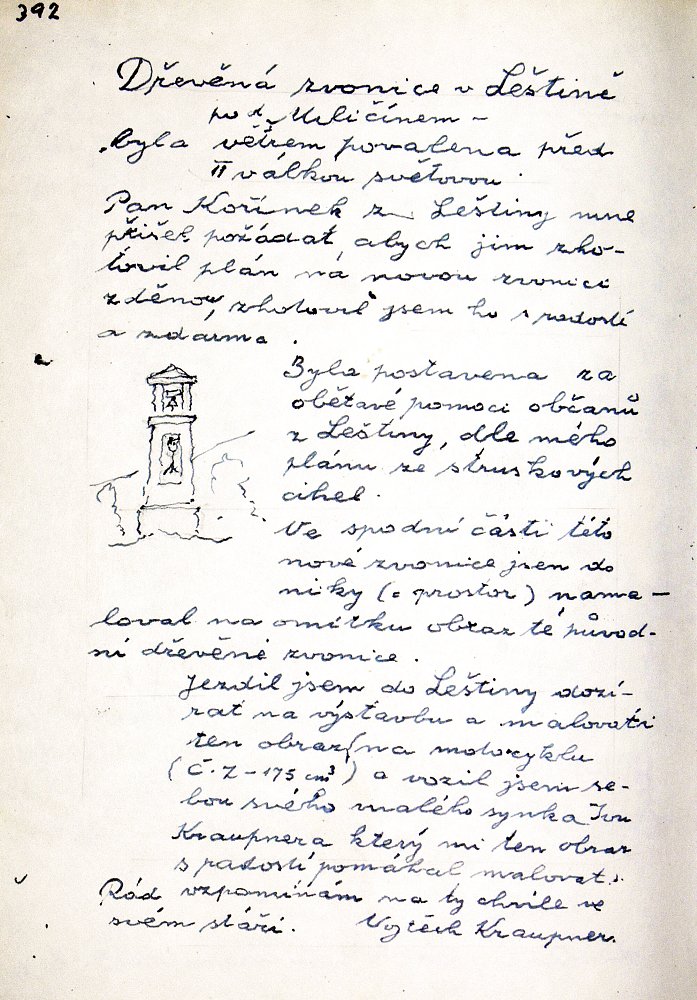 392
Dřevěná zvonice v Leštině
pod Uhličínem –
byla větrem povalena před
II válkou světovou.
Pan Kořínek z Leštiny mne
přišel požádat, abych jim zho-
tovil plán na novou zvonici
zděnou, zhotovil jsem ho s radostí
a zdarma.
Byla postavena za
obětavé pomoci občanů
z Leštiny, dle mého
plánu ze struskových
cihel.
Ve spodní části této
nové zvonice jsem do
niky (= prostor) nama-
loval na omítku obraz té původ-
ní dřevěné zvonice.
Jezdil jsem do Leštiny dozí-
rat na výstavbu a malovati
ten obraz (na motocyklu
(Č.Z – 175 cm³) a vozil jsem se-
bou svého malého synka Ivu
Kraupnera který mi ten obraz
s radostí pomáhal malovat.
Rád vzpomínám na ty chvíle ve
svém stáří. Vojtěch Kraupner.